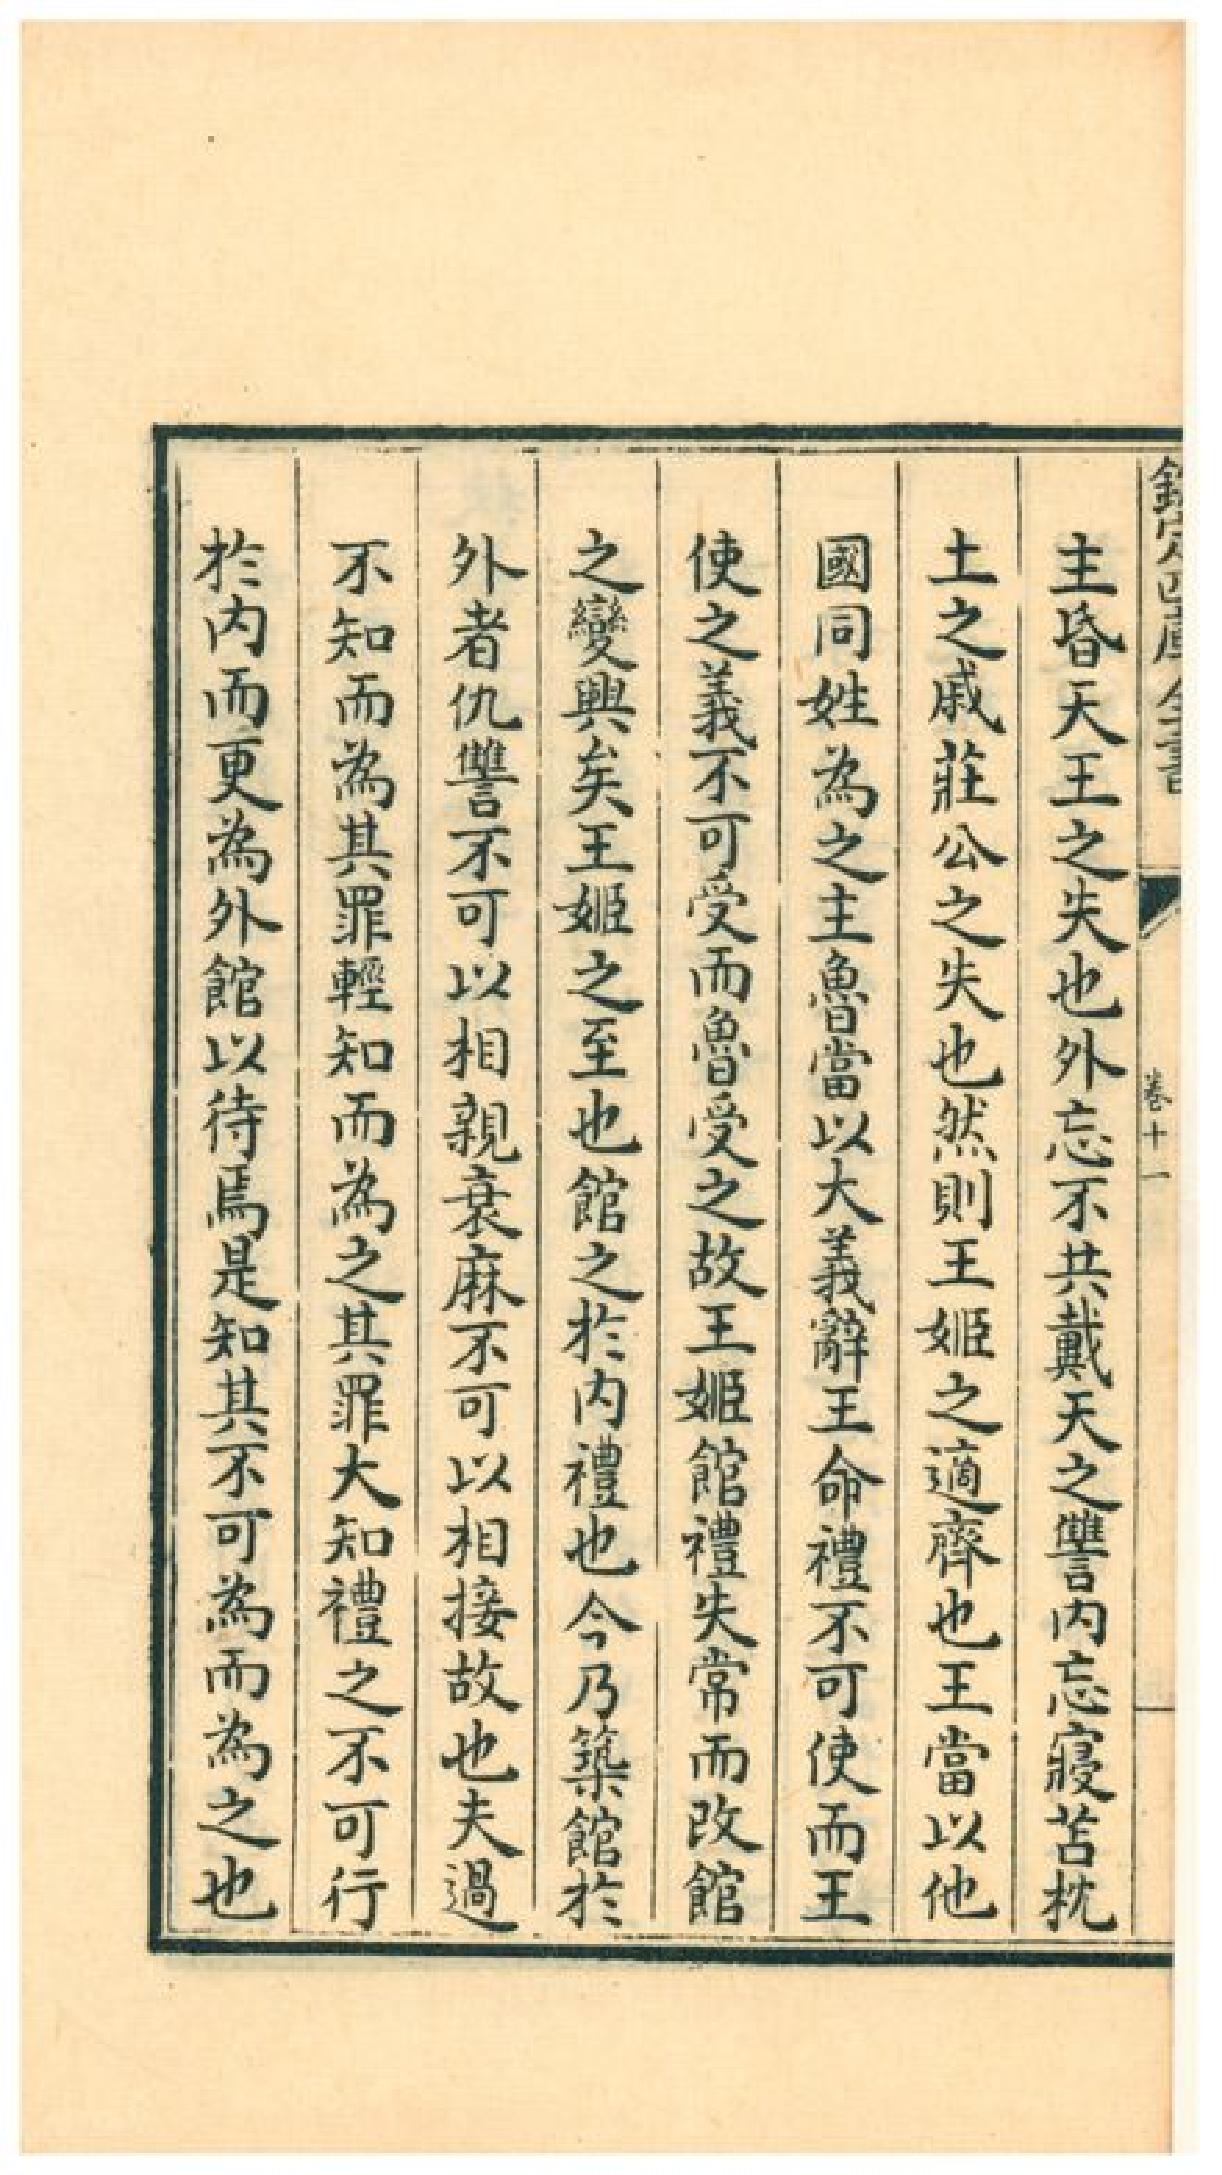 欽定四庫全書
卷十一
主昏天王之失也外忘不共戴天之讐内忘寢苫枕
土之戚莊公之失也然則王姬之適齊也王當以他
國同姓為之主魯當以大義辭王命禮不可使而王
使之義不可受而魯受之故王姬館禮失常而改館
之變興矣王姬之至也館之於内禮也今乃築館於
外者仇讐不可以相親衰麻不可以相接故也夫過
不知而為其罪輕知而為之其罪大知禮之不可行
於内而更為外館以待焉是知其不可為而為之也